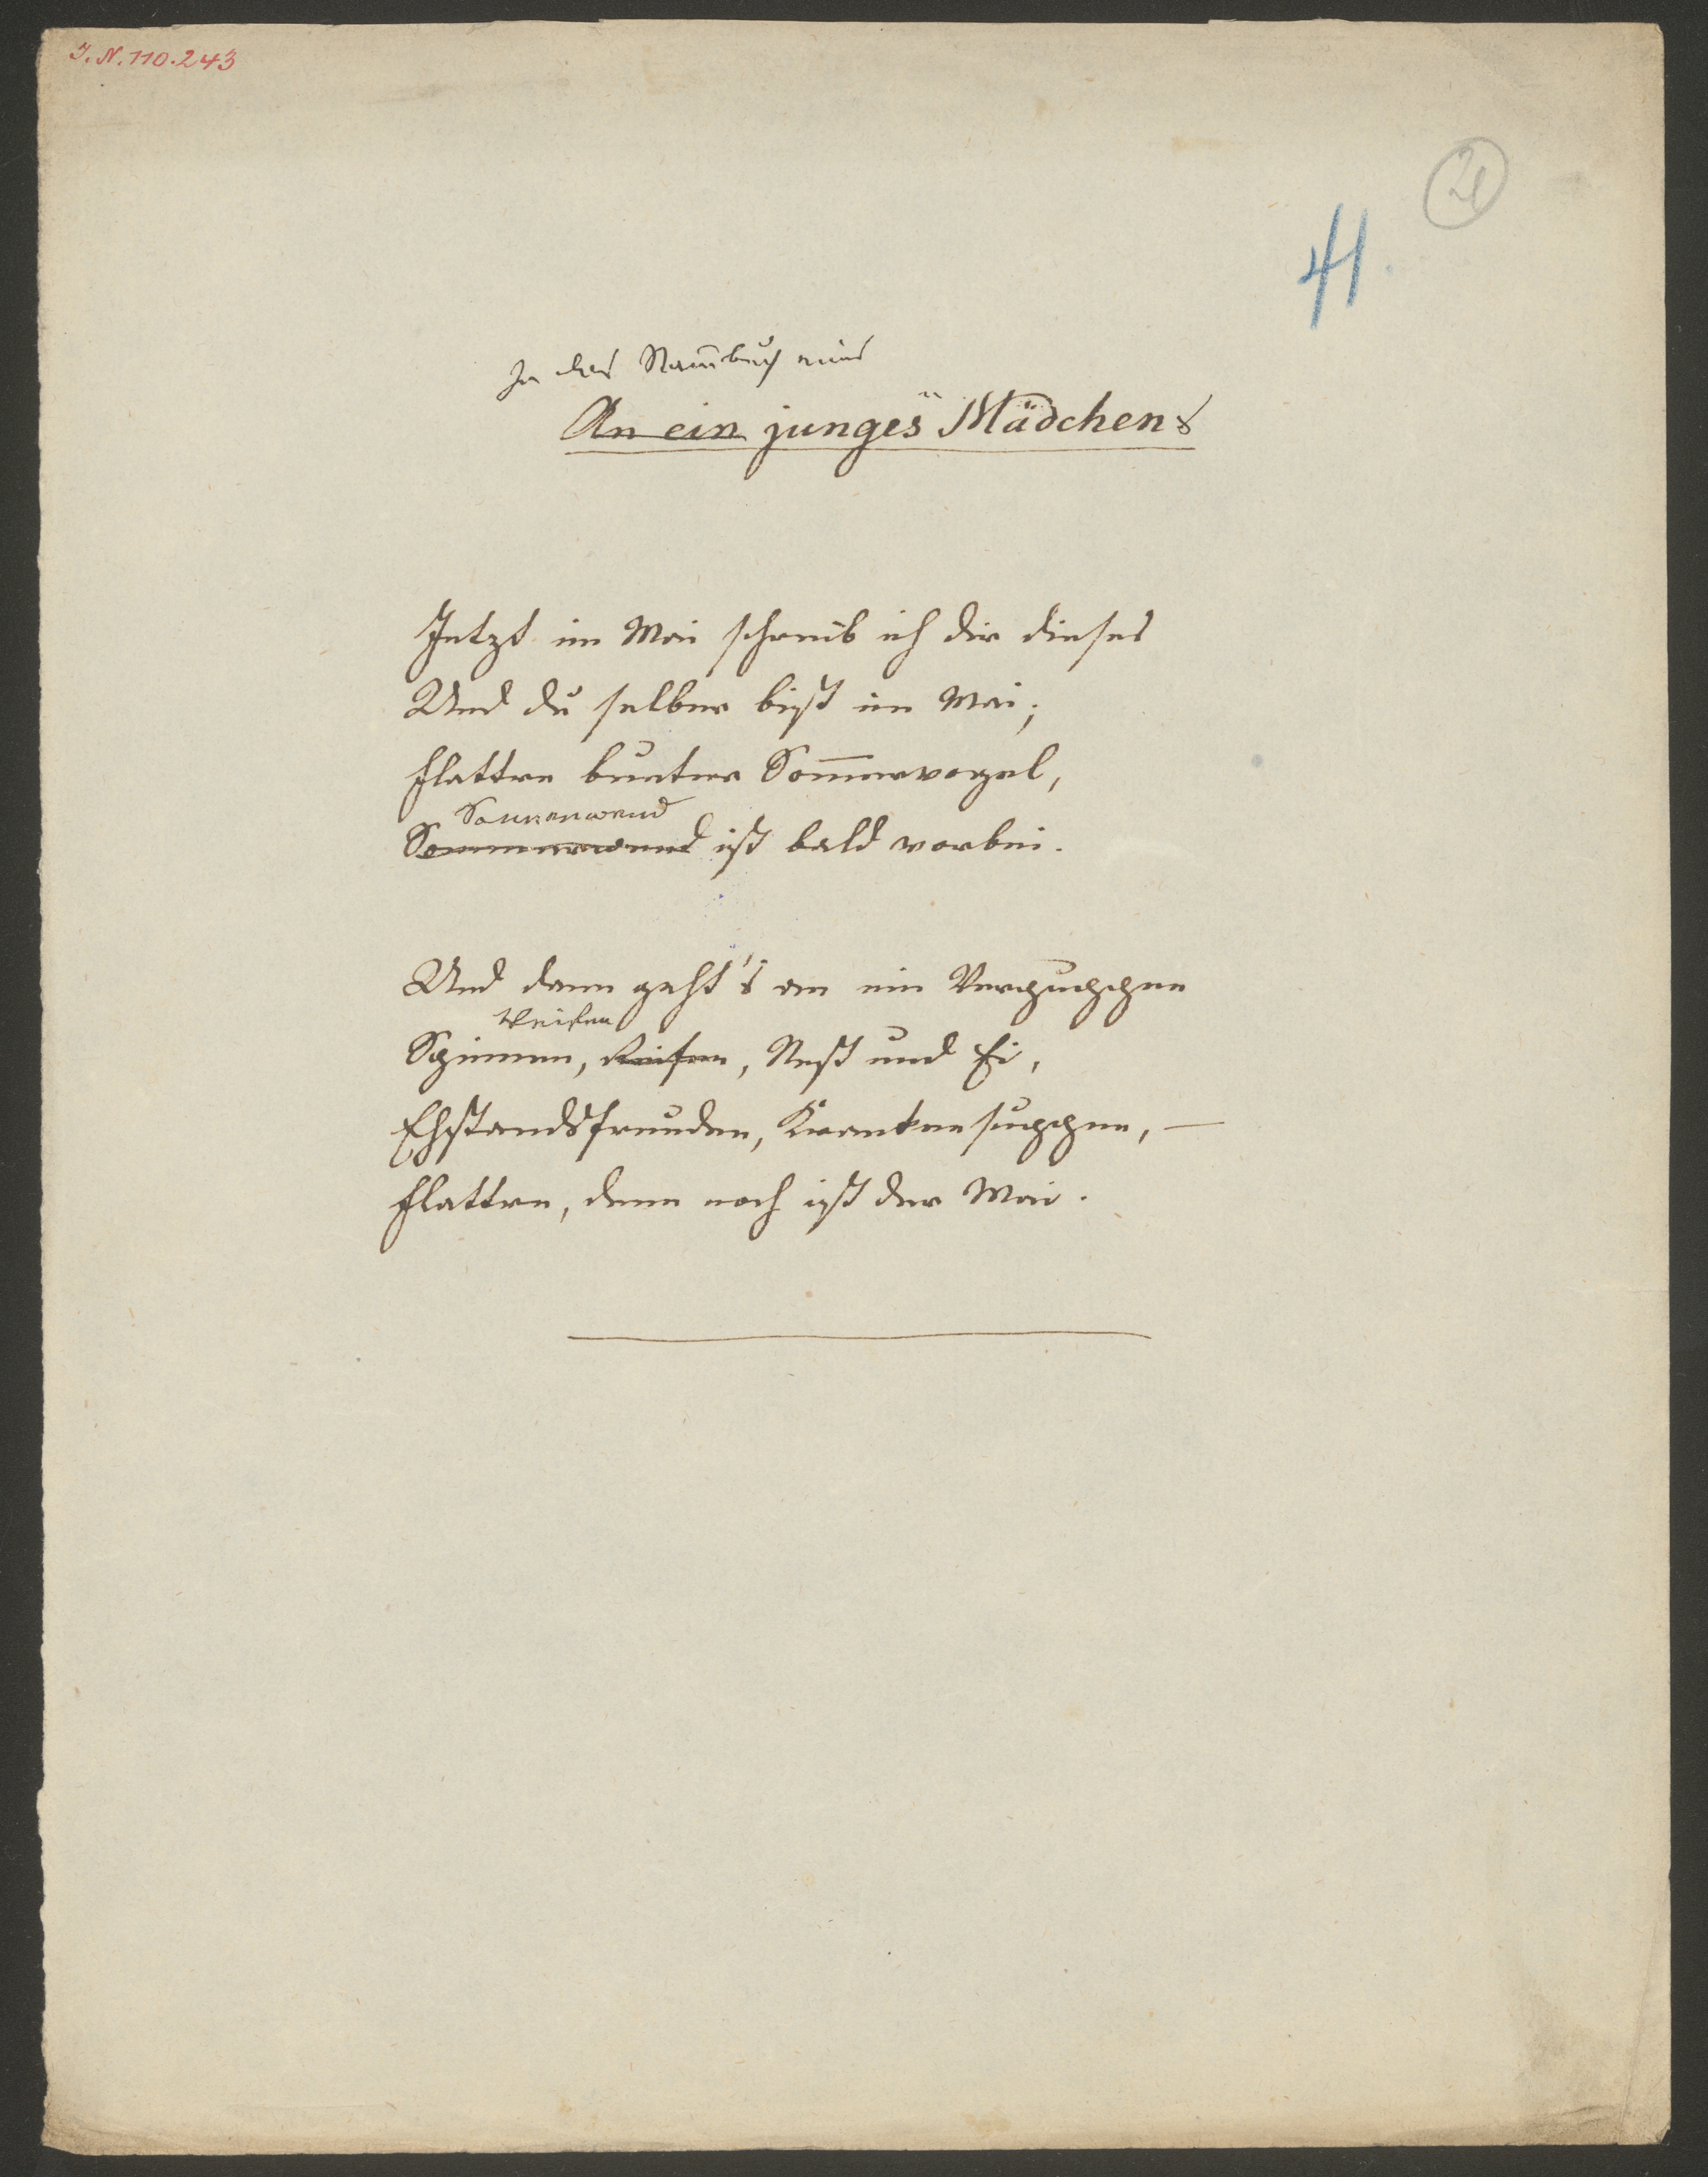 I. N. 110.243
21
41.
In das Stam̅buch eines
An ein junges Mädchens
Jetzt im Mai schreib ich dir dieses
Und du selber bist im Mai;
Flattre bunter Som̅ervogel,
Sonnenwend
Sommerwend ist bald vorbei.
Und dann geht's an ein Verpuppen
Weifen
Spinnen, Reifen, Nest und Ei,
Ehstandsfreuden, Krankensuppen, —
Flattre, denn noch ist der Mai.